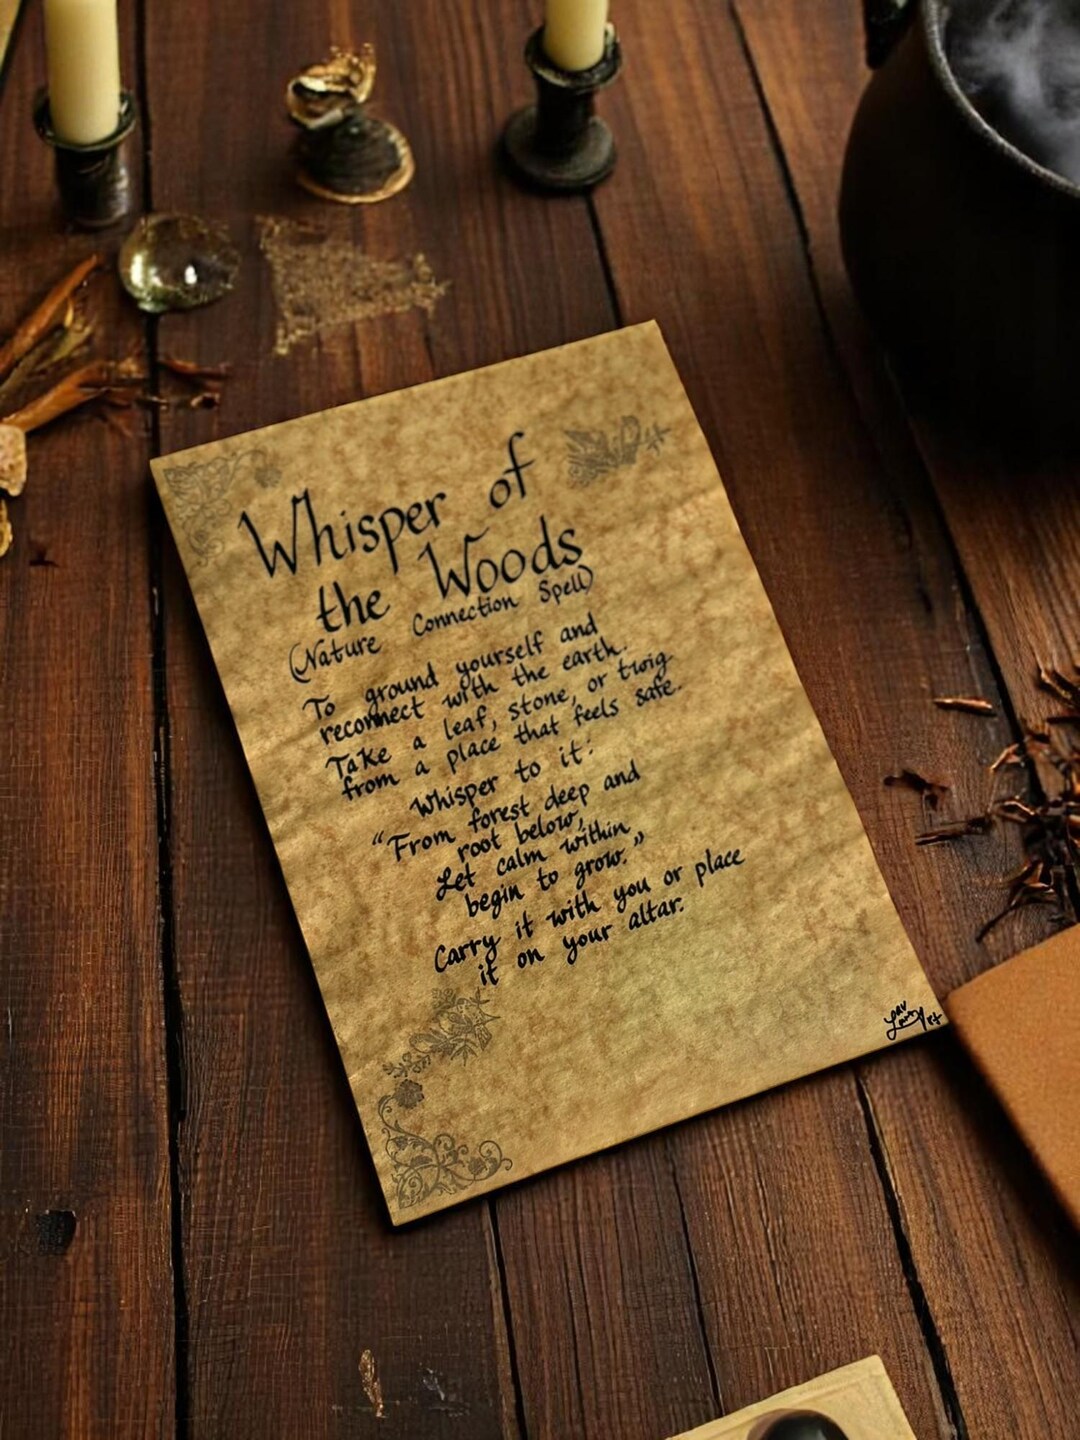 Whisper of
the Woods
(Nature Connection Spell)
To ground yourself and
reconnect with the earth.
Take a leaf, stone, or twig
from a place that feels safe.
Whisper to it:
“From forest deep and
root below,
Let calm within
begin to grow.”
Carry it with you or place
it on your altar.